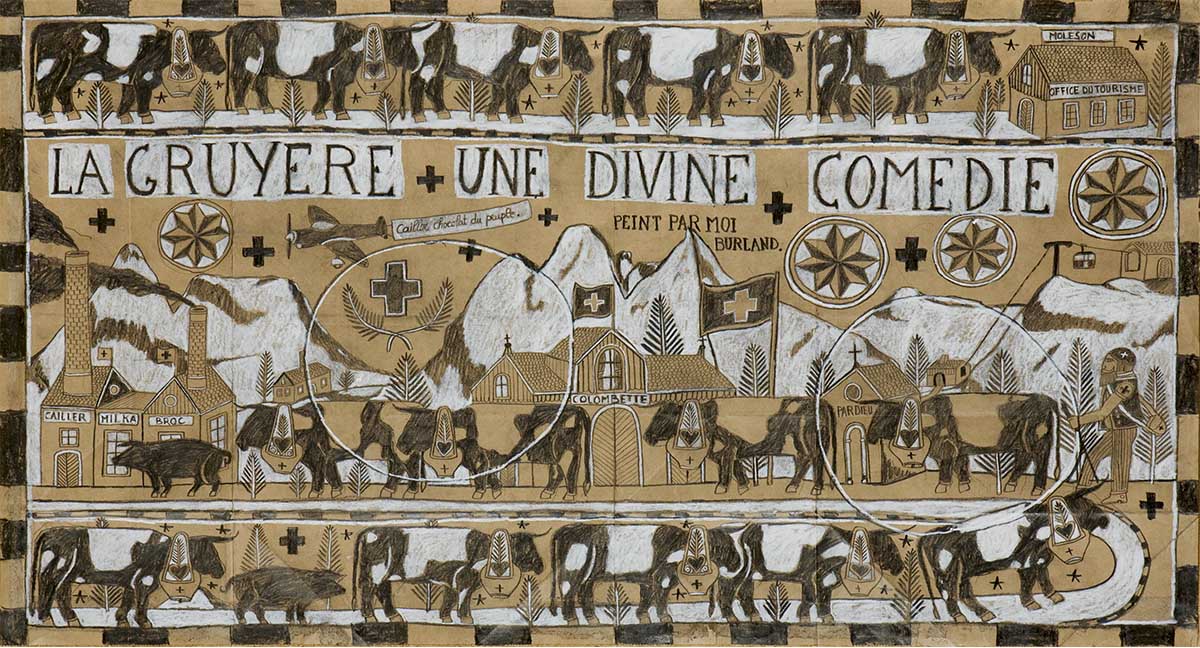 MOLESON
OFFICE DU TOURISME
LA GRUYERE UNE DIVINE COMEDIE
Cailler chocolat du peuple.
PEINT PAR MOI
BURLAND.
COLOMBETTE
PAR DIEU
CAILLER MILKA BROC